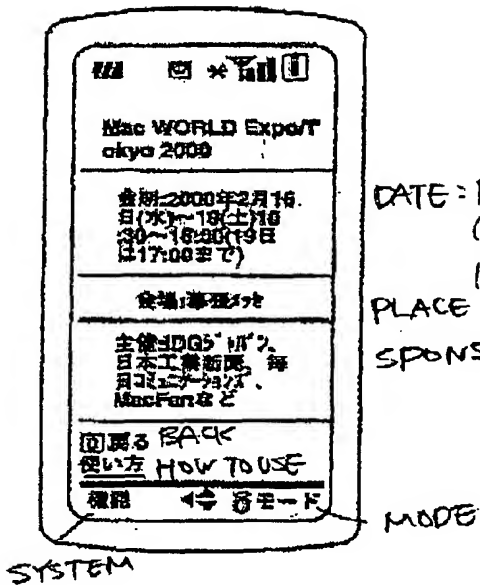 Mac WORLD Expo/T
okyo 2000
会期:2000年2月16
日(水)〜19(土)10
:30〜18:00(19日
は17:00まで)
会場:幕張メッセ
主催:IDGジャパン、
日本工業新聞、毎
日コミュニケーションズ、
MacFanなど
戻る BACK
使い方 HOW TO USE
モード
DATE:
PLACE
SPONS
MODE
SYSTEM